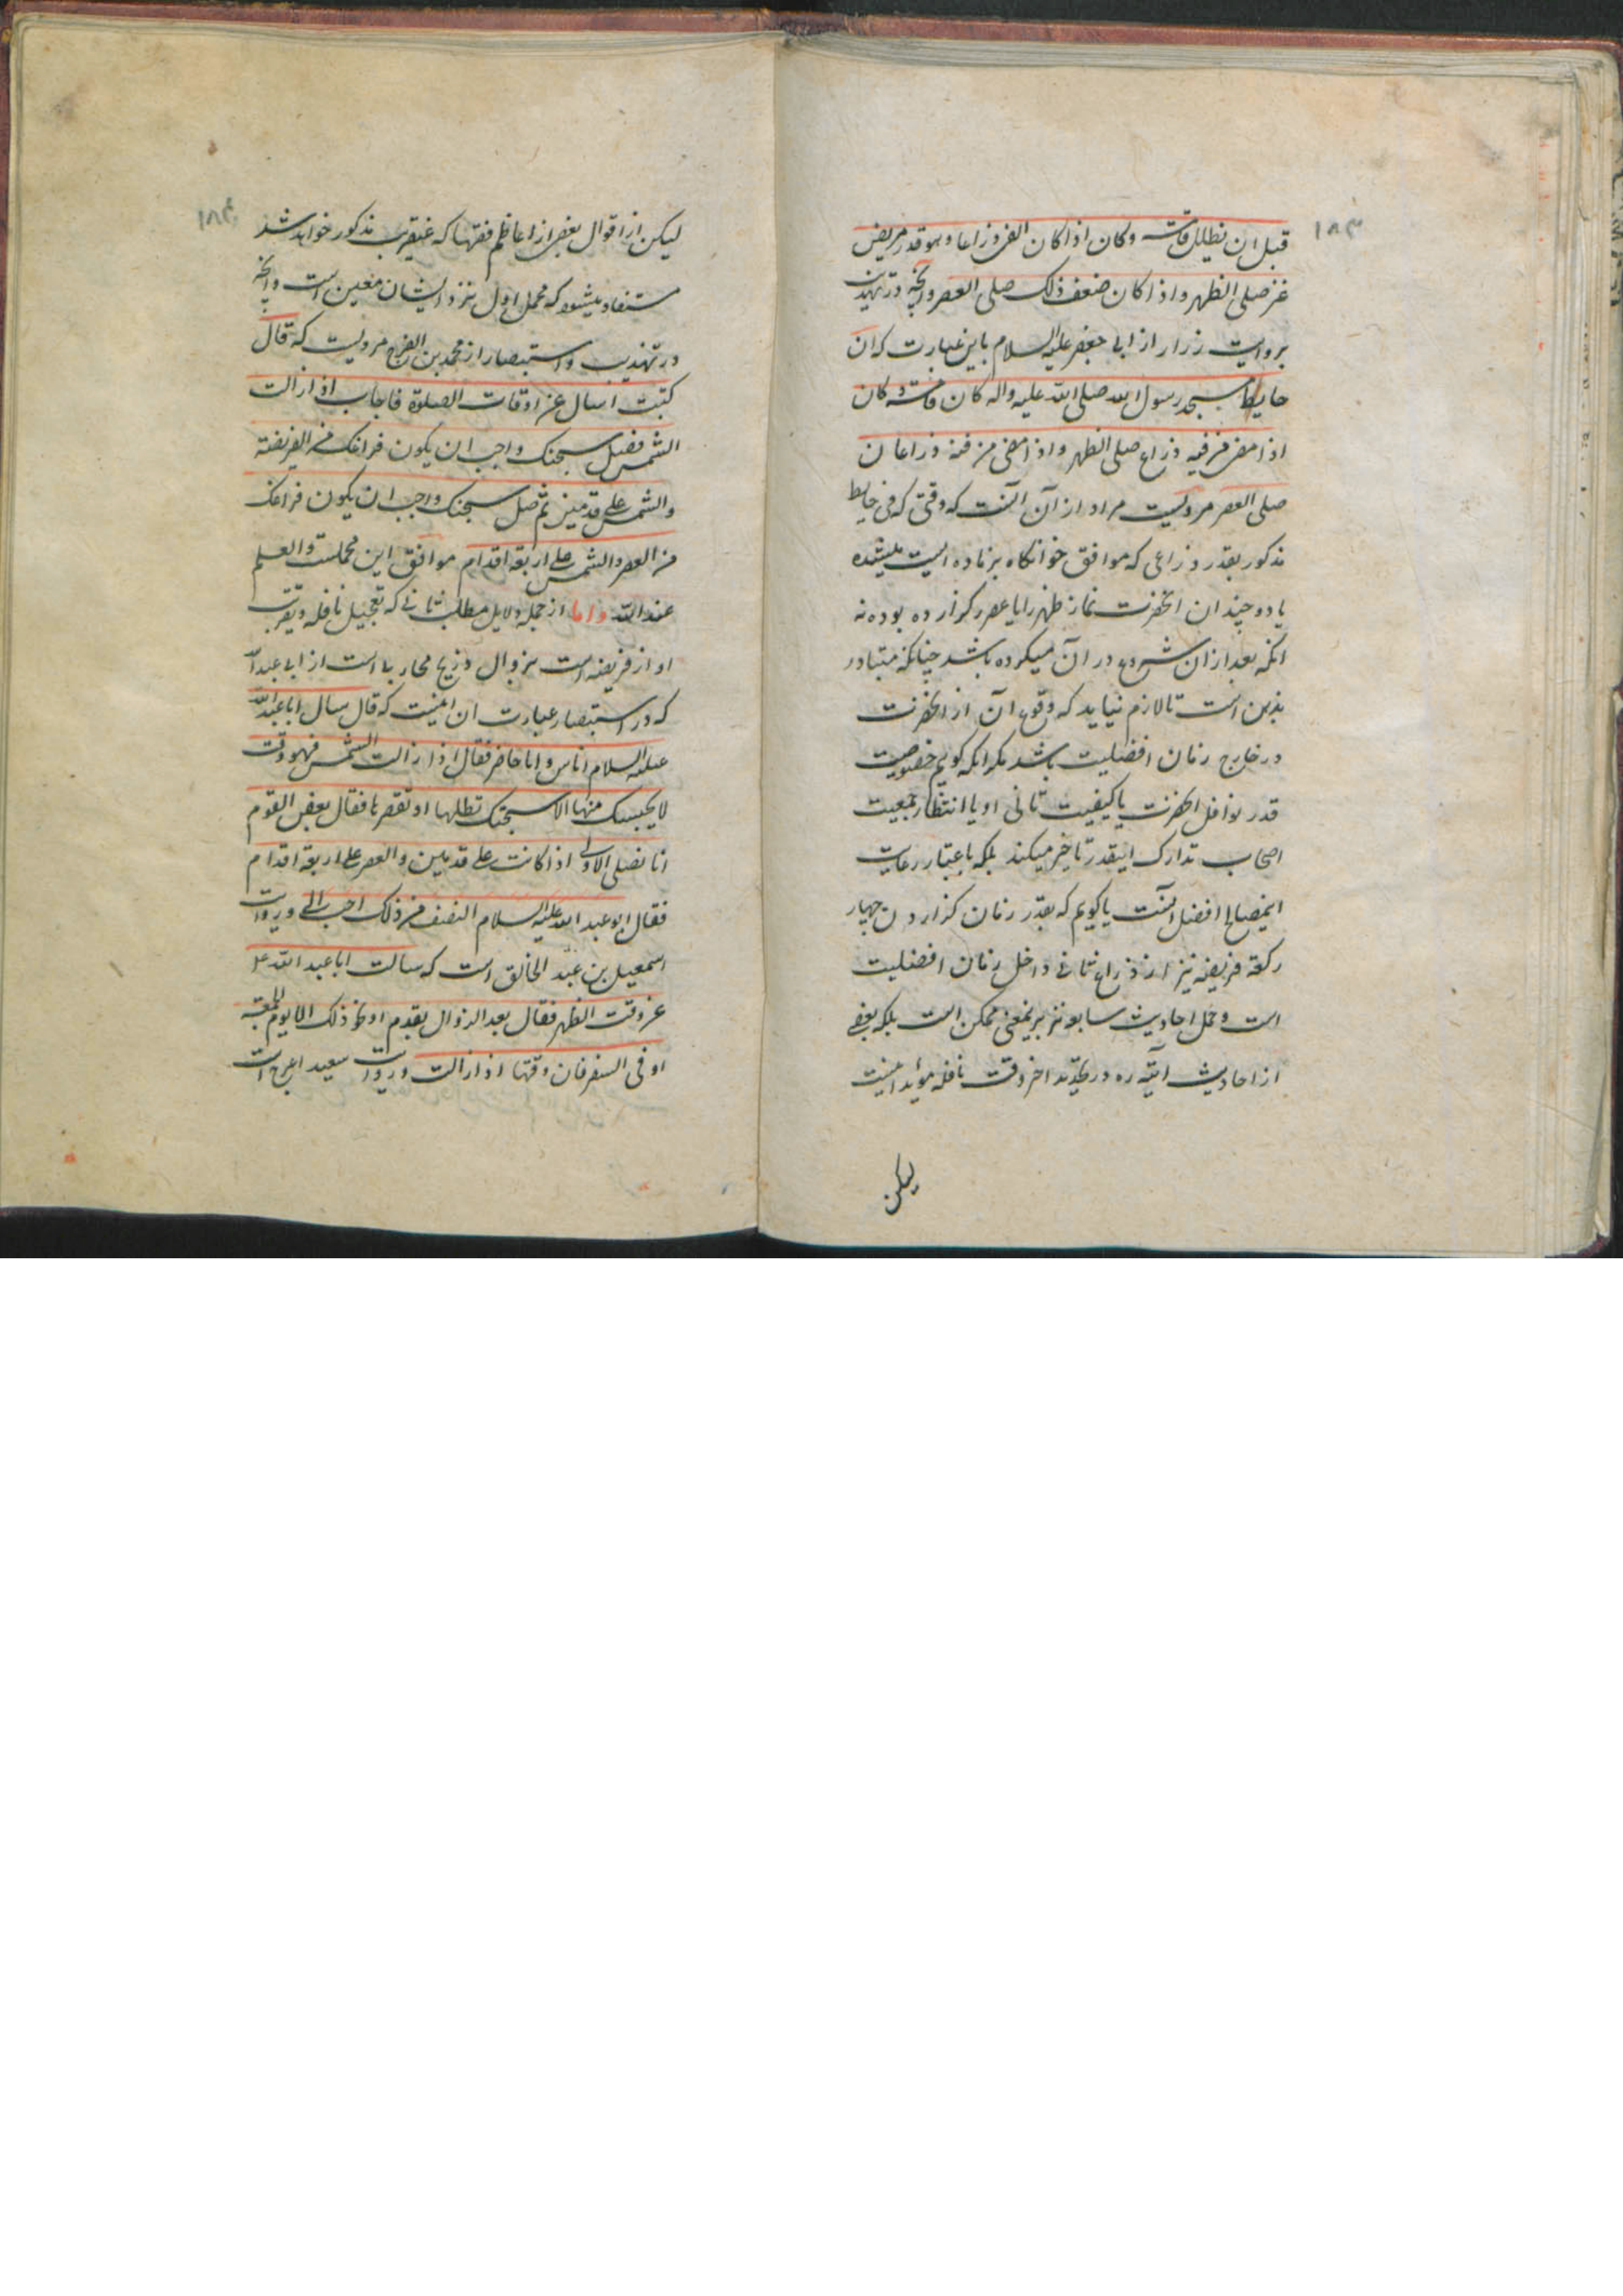 ۱۸۳
قبل ان یظلل قامة وکان اذا کان الفئ ذراعا وهو قدر مربض
عنز صلی الظهر واذا کان ضعف ذلک صلی العصر وانچه در تهذیب
بروایت زراره از ابی جعفر علیه السلام باین عبارت که ان
حایط مسجد رسول الله صلی الله علیه واله کان قامة وکان
اذا مضی من فیئه ذراع صلی الظهر واذا مضی من فیئه ذراعان
صلی العصر مرویست مراد از آن آنست که وقتی که فئ حایط
مذکور بقدر ذراعی که موافق خوابگاه بز ماده ایست میشده
یا دو چندان انحضرت نماز ظهر را یا عصر را گذارده بوده نه
انکه بعد از ان شروع در آن میکرده باشد چنانکه متبادر
بذهن است تا لازم نیاید که وقوع آن از انحضرت
در خارج زمان افضلیت باشد مگر انکه گوییم خصوصیت
قدر نوافل انحضرت یا کیفیت تانی او یا انتظار جمعیت
اصحاب تدارک اینقدر تاخیر میکند بلکه باعتبار رعایت
اینمصالح افضل آنست یا گوییم که بقدر زمان گذاردن چهار
رکعة فریضه نیز از ذراع ثانی داخل زمان افضلیت
است وحمل احادیث سابقه نیز بر اینمعنی ممکن است بلکه بعضی
از احادیث آتیه ره در تحدید اخر وقت نافله موید اینست
لیکن
۱۸۴
لیکن از اقوال بعضی از اعاظم فقها که عنقریب مذکور خواهد شد
مستفاد میشود که محمل اول نزد ایشان معین است وانچه
در تهذیب واستبصار از محمد بن الفرج مرویست که قال
کتبت اسال عن اوقات الصلوة فاجاب اذا زالت
الشمس فصل سبحتک واحب ان یکون فراغک من الفریضة
والشمس علی قدمین ثم صل سبحتک واحب ان یکون فراغک
من العصر والشمس علی اربعة اقدام موافق این محملست والعلم
عند الله واما از جمله دلایل مطلب ثانی که تعجیل نافله وتقریب
او از فریضه است بزوال ذریح محاربی است از ابی عبد الله
که در استبصار عبارت ان اینست که قال سال ابا عبد الله
علیه السلام اناس وانا حاضر فقال اذا زالت الشمس فهو وقت
لا یحبسک منها الا سبحتک تطیلها او تقصرها فقال بعض القوم
انا نصلی الاولی اذا کانت علی قدمین والعصر علی اربعة اقدام
فقال ابو عبد الله علیه السلام النصف من ذلک احب الی وروایت
اسمعیل بن عبد الخالق است که سالت ابا عبد الله ع
عن وقت الظهر فقال بعد الزوال بقدم او نحو ذلک الا یوم الجمعة
او فی السفر فان وقتها اذا زالت وروایت سعید اعرج است